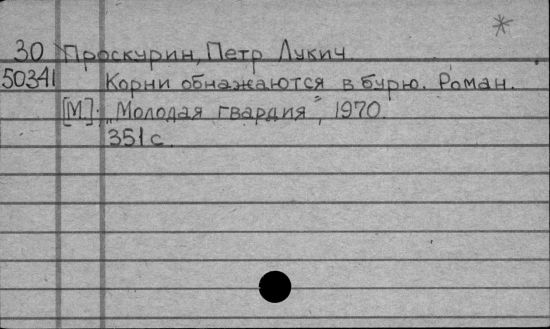 *
30 Проскурин, Петр Лукич.
50341 Корни обнажаются в бурю. Роман.
[М.], „Молодая гвардия", 1970.
351 с.